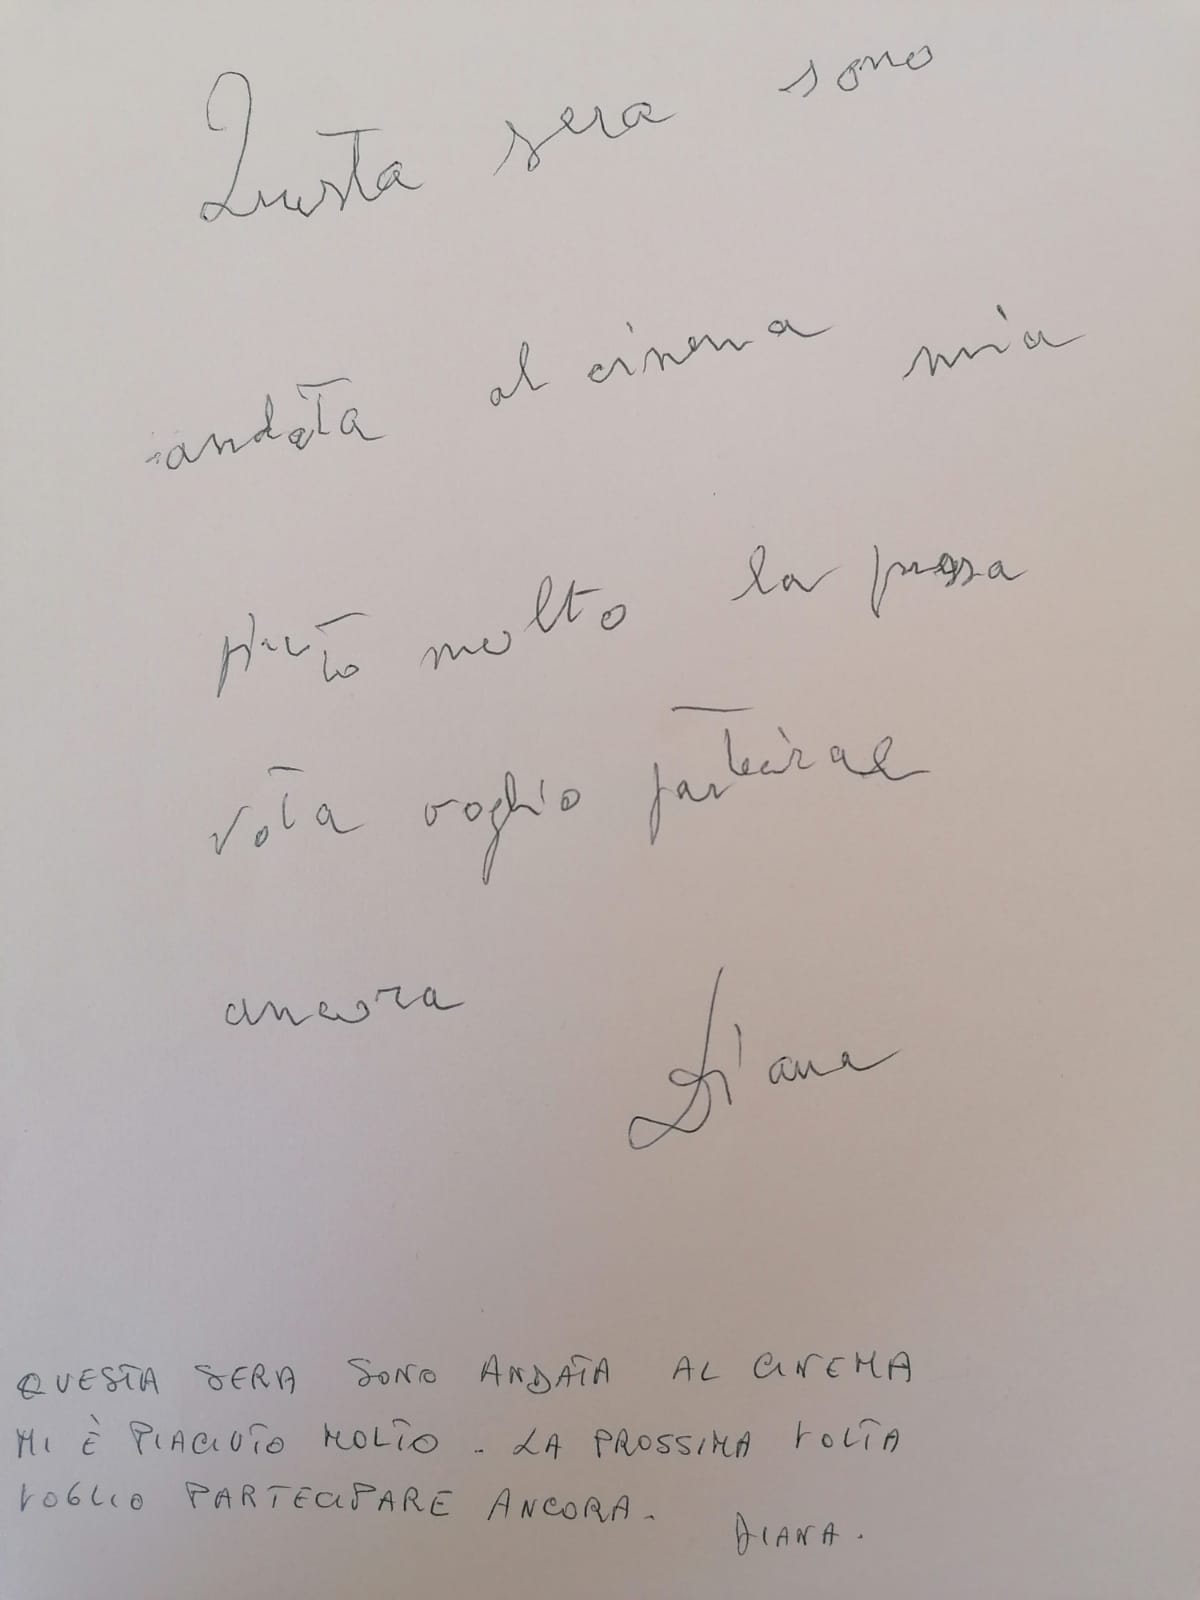 Questa sera sono
andata al cinema mia
piuto molto la prossa
vota voglio parteirae
ancora Diana
QUESTA SERA SONO ANDATA AL CINEMA
MI È PIACIUTO MOLTO. LA PROSSIMA VOLTA
VOGLIO PARTECIPARE ANCORA.
DIANA.